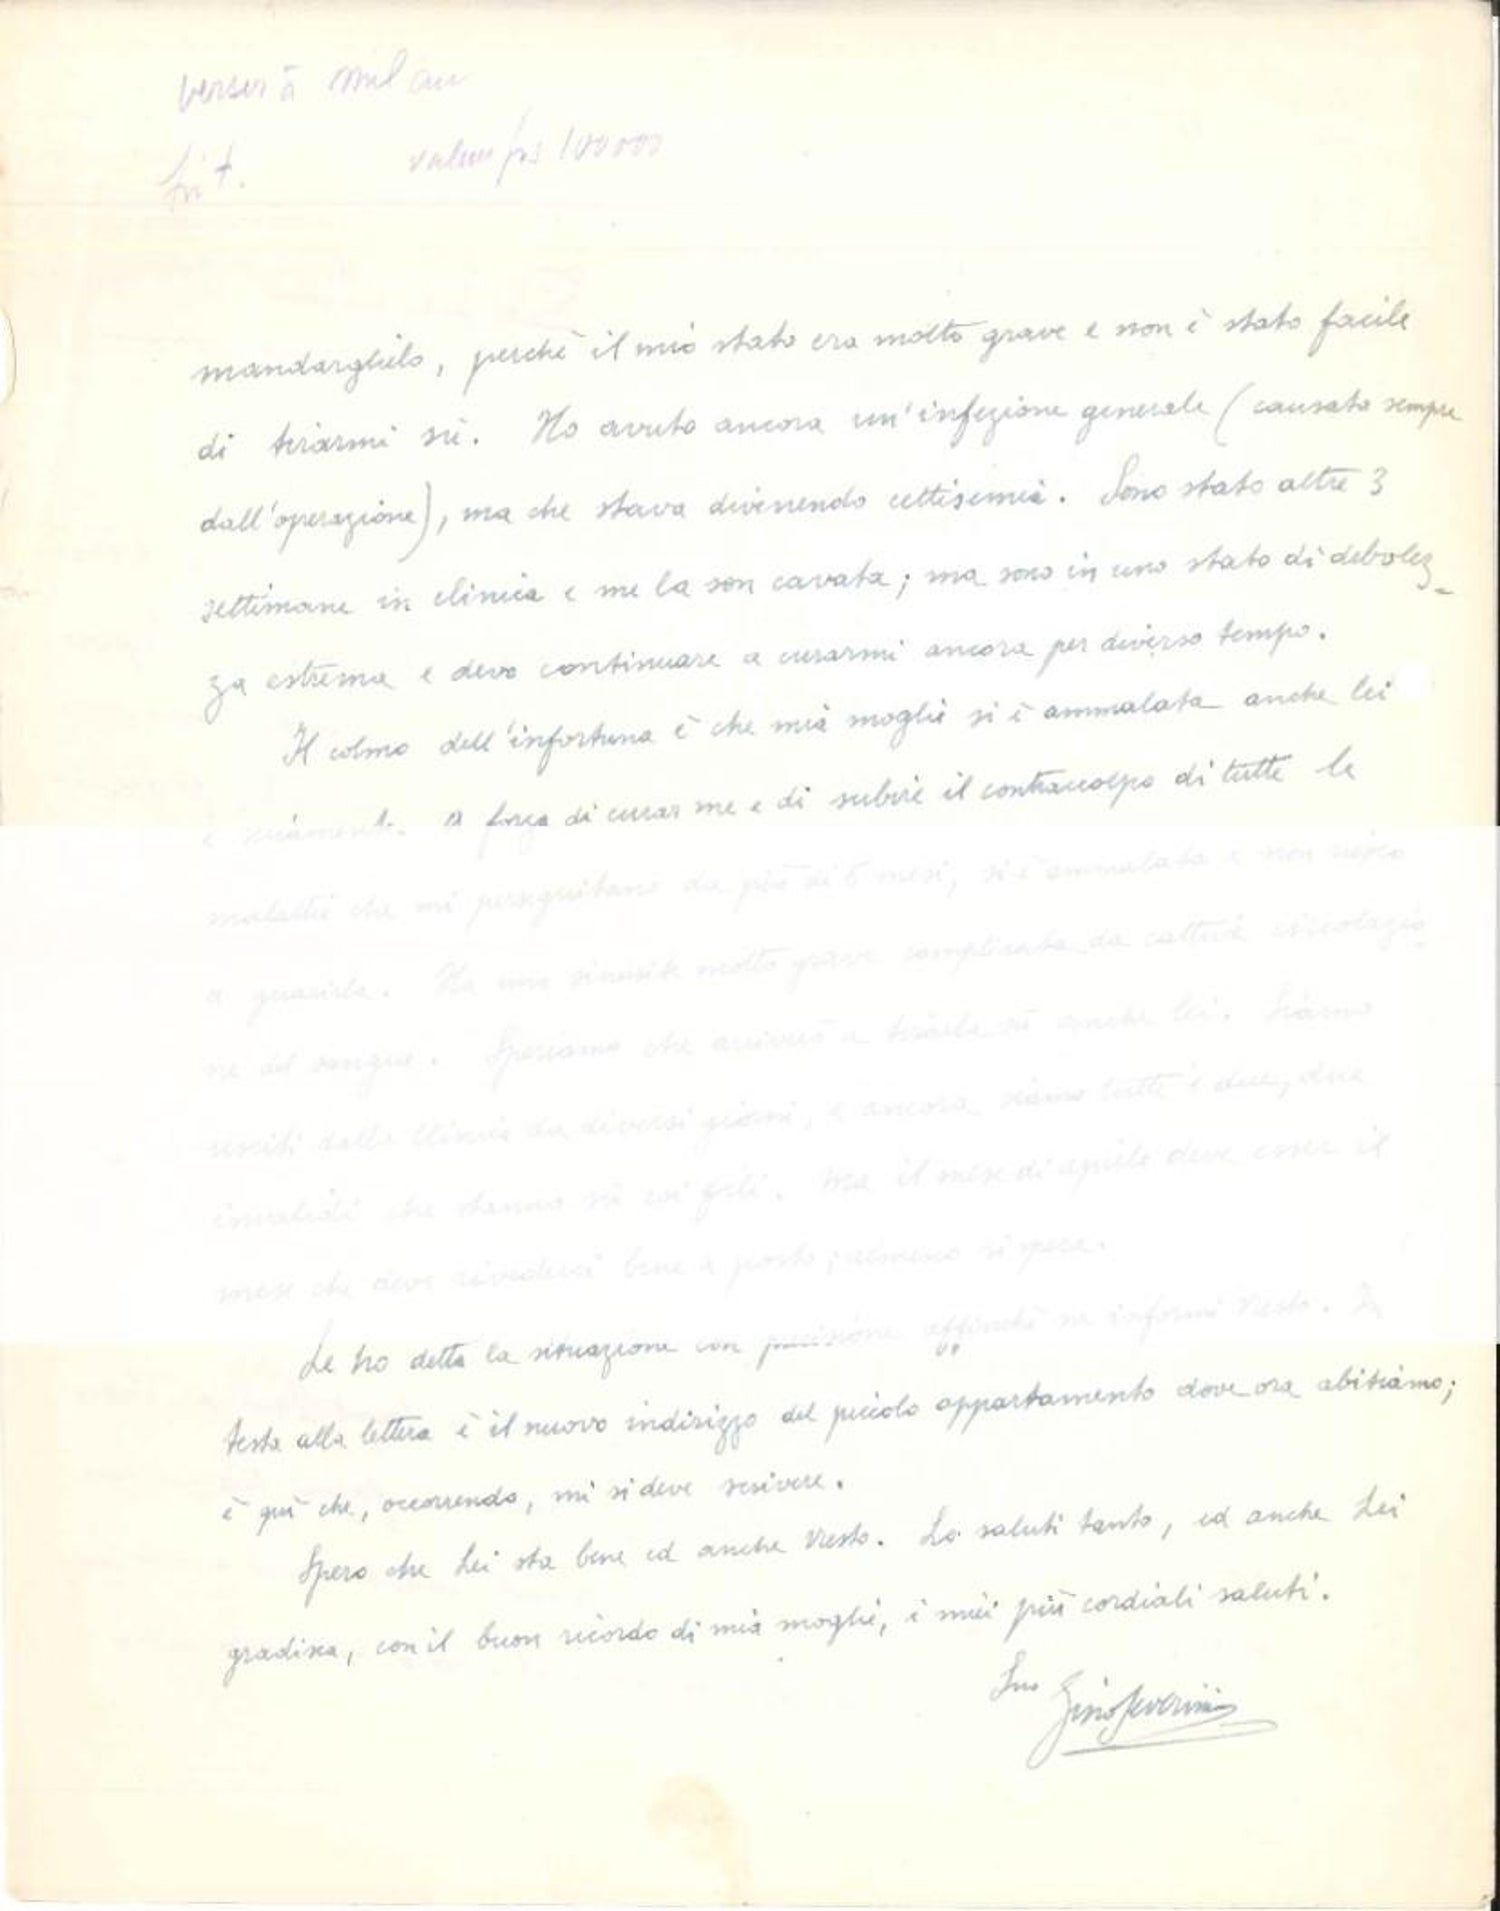 verser à Milan
lit. valeur frs 100000
mandarglielo, perchè il mio stato era molto grave e non è stato facile
di tirarmi sù. Ho avuto ancora un'infezione generale (causata sempre
dall'operazione), ma che stava divenendo cettisemia. Sono stato altre 3
settimane in clinica e me la son cavata; ma sono in uno stato di debolez-
za estrema e devo continuare a curarmi ancora per diverso tempo.
Il colmo dell'infortuna è che mia moglie si è ammalata anche lei
è seriamente. A forza di curar me e di subire il contraccolpo di tutte le
malattie che mi perseguitano da più di 6 mesi, si è ammalata e non riesco
a guarirla. Ha una sinusite molto grave complicata da cattiva circolazio-
ne del sangue. Speriamo che arriverò a tirarla sù anche lei. Siamo
usciti dalla clinica da diversi giorni, e ancora siamo tutti e due, due
invalidi che stanno sù coi fili. Ma il mese di aprile deve esser il
mese che deve rivederci bene a posto; almeno si spera.
Le ho detta la situazione con precisione affinchè ne informi Nesto. In
testa alla lettera è il nuovo indirizzo del piccolo appartamento dove ora abitiamo;
è quì che, occorrendo, mi si deve scrivere.
Spero che Lei sta bene ed anche Nesto. Lo saluti tanto, ed anche Lei
gradisca, con il buon ricordo di mia moglie, i miei più cordiali saluti.
Suo Gino Severini